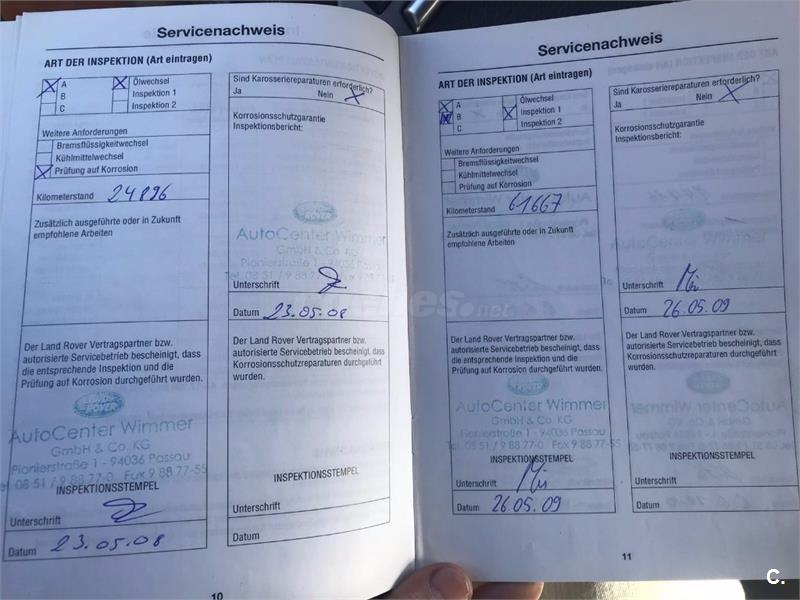 Servicenachweis
ART DER INSPEKTION (Art eintragen)
A
B
C
Ölwechsel
Inspektion 1
Inspektion 2
Weitere Anforderungen
Bremsflüssigkeitwechsel
Kühlmittelwechsel
Prüfung auf Korrosion
Kilometerstand 24896
Zusätzlich ausgeführte oder in Zukunft
empfohlene Arbeiten
Der Land Rover Vertragspartner bzw.
autorisierte Servicebetrieb bescheinigt, dass
die entsprechende Inspektion und die
Prüfung auf Korrosion durchgeführt wurden.
LAND
ROVER
AutoCenter Wimmer
GmbH & Co. KG
Pionierstraße 1 - 94036 Passau
Tel. 08 51 / 9 88 77-0 Fax 9 88 77-55
INSPEKTIONSSTEMPEL
Unterschrift
Datum 23.05.08
Sind Karosseriereparaturen erforderlich?
Ja Nein
Korrosionsschutzgarantie
Inspektionsbericht:
LAND
ROVER
AutoCenter Wimmer
GmbH & Co. KG
Pionierstraße 1 - 94036
Tel. 08 51 / 9 88 77-0
Unterschrift
Datum 23.05.08
Der Land Rover Vertragspartner bzw.
autorisierte Servicebetrieb bescheinigt, dass
Korrosionsschutzreparaturen durchgeführt
wurden.
INSPEKTIONSSTEMPEL
Unterschrift
Datum
10
Servicenachweis
ART DER INSPEKTION (Art eintragen)
A
B
C
Ölwechsel
Inspektion 1
Inspektion 2
Weitere Anforderungen
Bremsflüssigkeitwechsel
Kühlmittelwechsel
Prüfung auf Korrosion
Kilometerstand 61667
Zusätzlich ausgeführte oder in Zukunft
empfohlene Arbeiten
Der Land Rover Vertragspartner bzw.
autorisierte Servicebetrieb bescheinigt, dass
die entsprechende Inspektion und die
Prüfung auf Korrosion durchgeführt wurden.
AutoCenter Wimmer
GmbH & Co. KG
Pionierstraße 1 - 94036 Passau
Tel. 08 51 / 9 88 77-0 Fax 9 88 77-55
INSPEKTIONSSTEMPEL
Unterschrift
Datum 26.05.09
Sind Karosseriereparaturen erforderlich?
Ja Nein
Korrosionsschutzgarantie
Inspektionsbericht:
Unterschrift
Datum 26.05.09
Der Land Rover Vertragspartner bzw.
autorisierte Servicebetrieb bescheinigt, dass
Korrosionsschutzreparaturen durchgeführt
wurden.
AutoCenter Wimmer
GmbH & Co. KG
INSPEKTIONSSTEMPEL
Unterschrift
Datum
11
C.